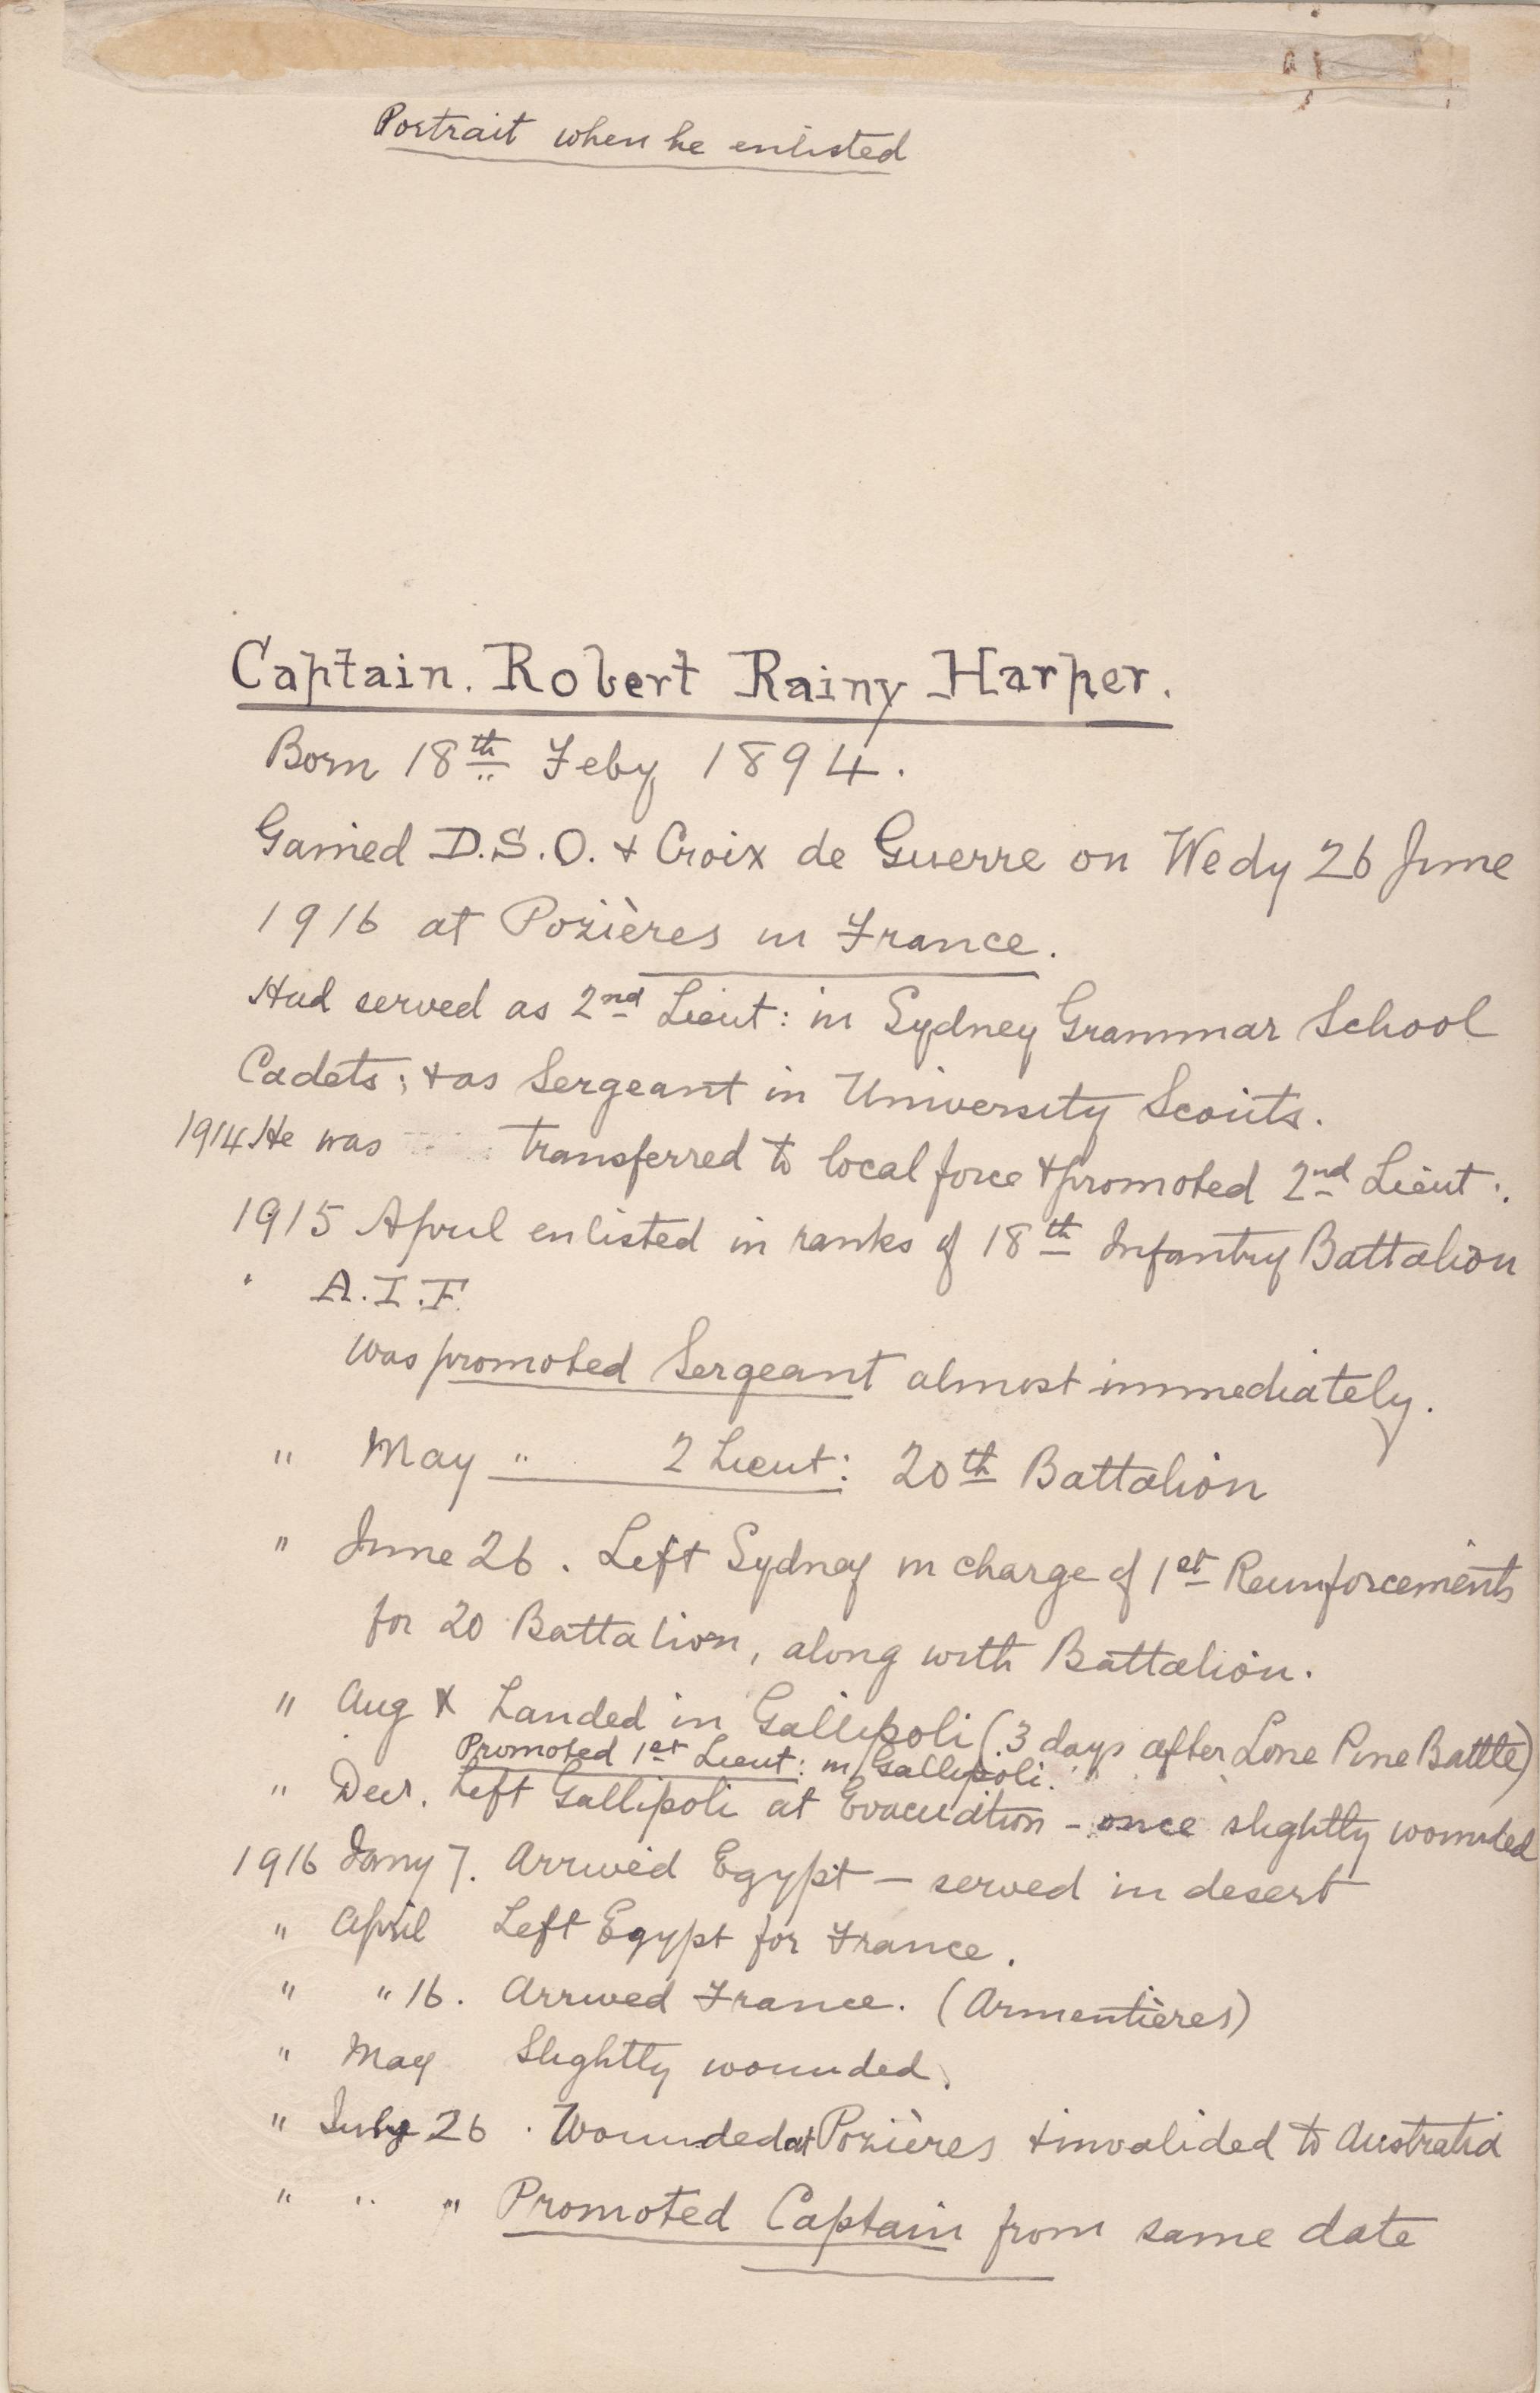 Portrait when he enlisted
Captain. Robert Rainy Harper.
Born 18th Feby 1894.
Gained D.S.O. + Croix de Guerre on Wedy 26 June
1916 at Pozières in France.
Had served as 2nd Lieut: in Sydney Grammar School
Cadets; + as Sergeant in University Scouts.
1914 He was transferred to local force + promoted 2nd Lieut:.
1915 April enlisted in ranks of 18th Infantry Battalion
" A.I.F.
Was promoted Sergeant almost immediately.
" May " 2 Lieut: 20th Battalion
" June 26. Left Sydney in charge of 1st Reinforcements
for 20 Battalion, along with Battalion.
" Aug x Landed in Gallipoli (3 days after Lone Pine Battle)
Promoted 1st Lieut: in Gallipoli.
" Decr. Left Gallipoli at Evacuation - once slightly wounded
1916 Jany 7. Arrived Egypt - served in desert
" April Left Egypt for France.
" " 16. Arrived France. (Armentières)
" May Slightly wounded.
" July 26. Wounded at Pozières + invalided to Australia
" " " Promoted Captain from same date